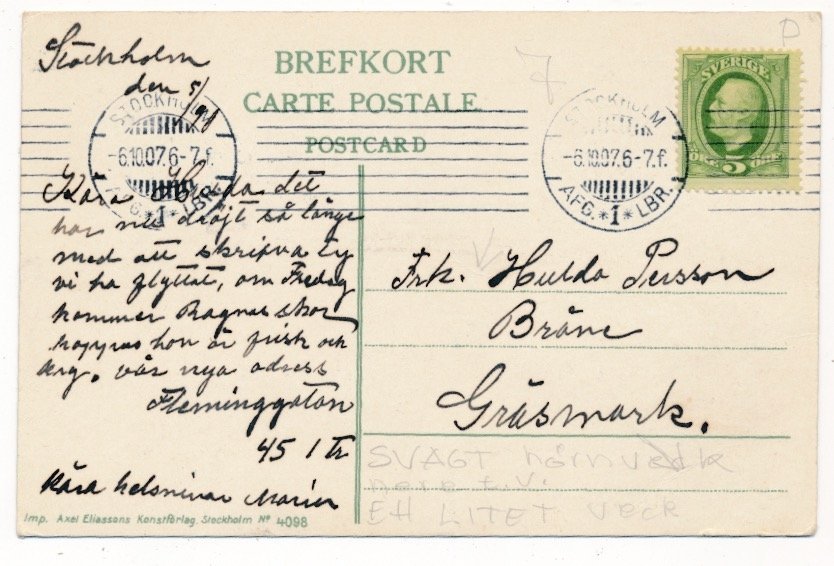 Stockholm
den 5/10
BREFKORT
CARTE POSTALE
POSTCARD
STOCKHOLM
-6.10.07.6-7.f.
AFG. *1* LBR.
STOCKHOLM
-6.10.07.6-7.f.
AFG. *1* LBR.
SVERIGE
5
ÖRE
7
Kära Hulda det
har nu dröjt så länge
med att skrifva ty
vi ha flyttat, om Fredag
kommer Ragnas skor
hoppas hon är frisk och
kry. vår nya adress
Fleminggatan
45 1 tr
Kära helsningar Maria
Frk. Hulda Persson
Bråne
Gräsmark.
SVAGT hörnveck
nere t.v.
Ett LITET veck
Imp. Axel Eliassons Konstförlag, Stockholm Nº 4098